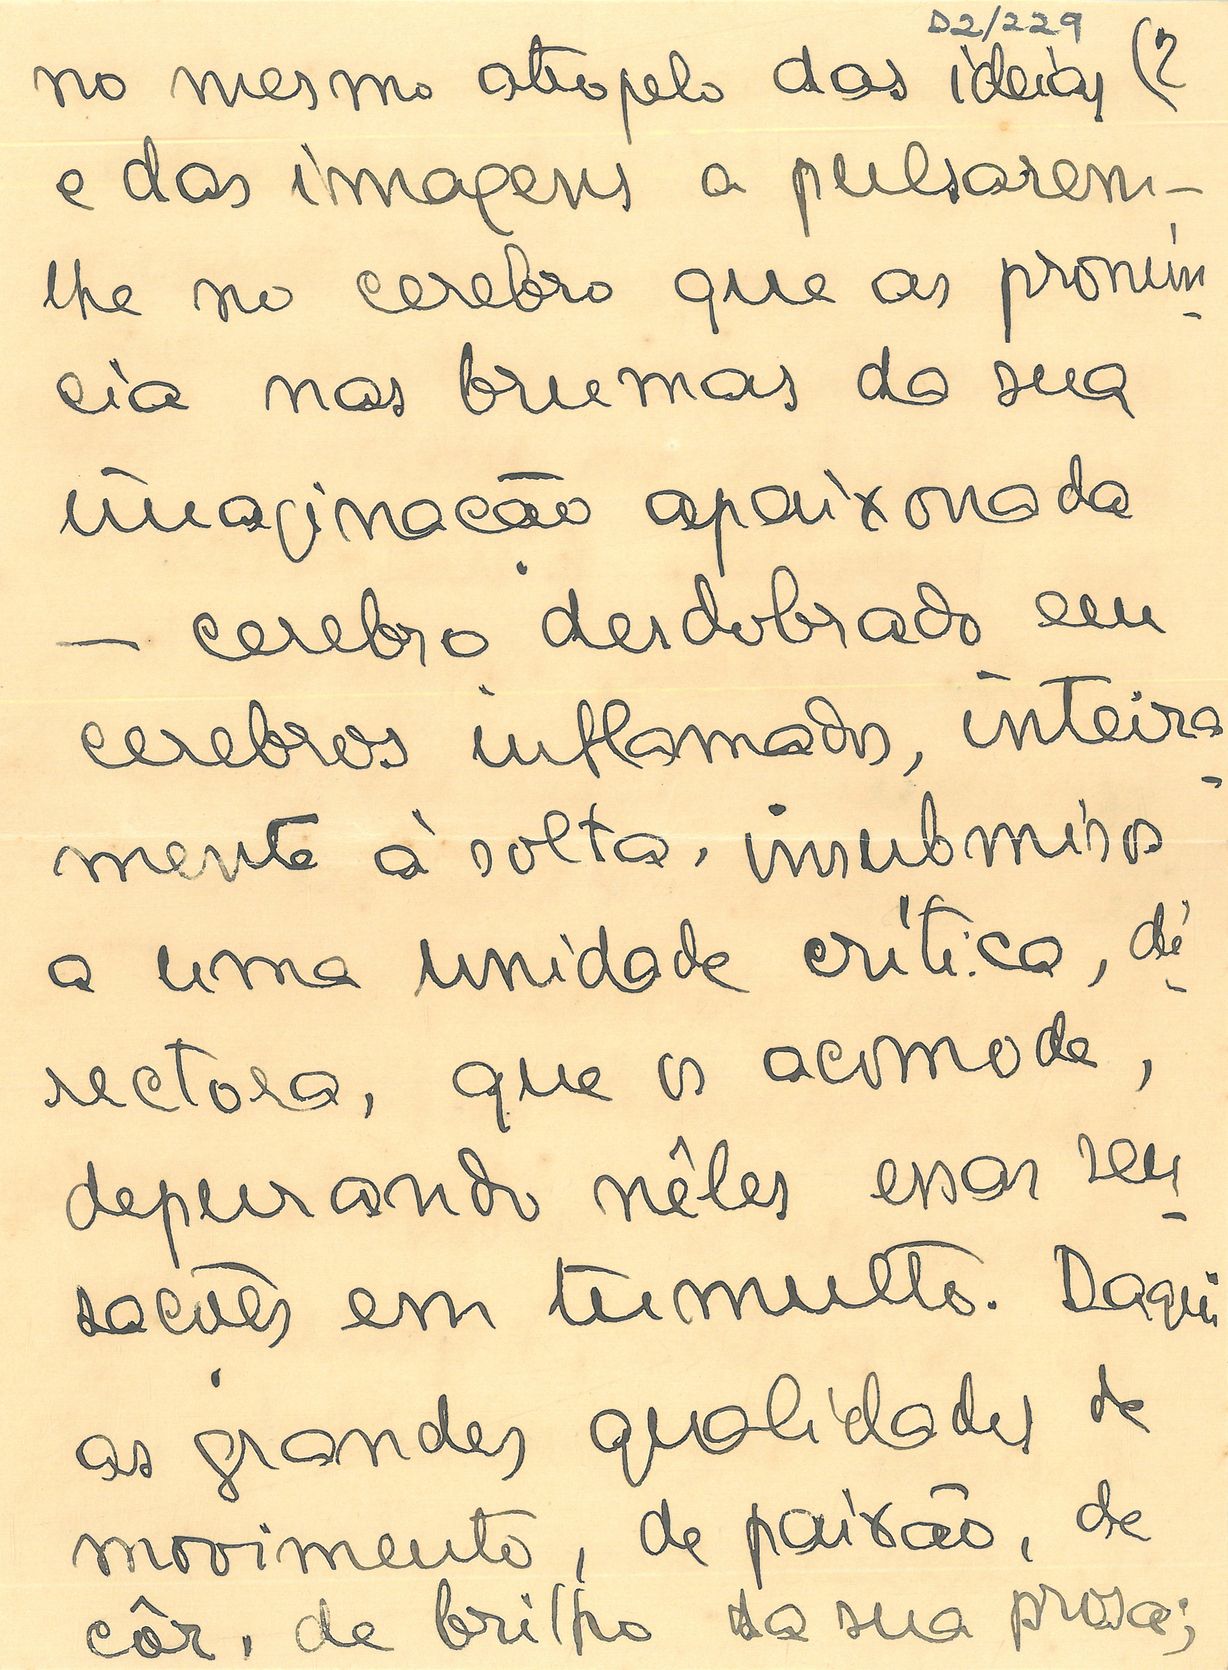 D2/229
no mesmo atropelo das ideias (2
e das imagens a pulsarem-
lhe no cerebro que as pronún-
cia nas brumas da sua
imaginação apaixonada
— cerebro desdobrado em
cerebros inflamados, inteira-
mente à solta, insubmisos
a uma unidade crítica, di-
rectora, que os acomode,
depurando nêles essas sen-
sações em tumulto. Daqui
as grandes qualidades de
movimento, de paixão, de
côr, de brilho da sua prosa;